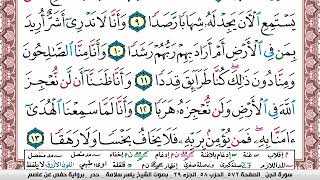 يَسْتَمِعِ الْآنَ يَجِدْ لَهُ شِهَابًا رَصَدًا ۝٩ وَأَنَّا لَا نَدْرِي أَشَرٌّ أُرِيدَ
بِمَن فِي الْأَرْضِ أَمْ أَرَادَ بِهِمْ رَبُّهُمْ رَشَدًا ۝١٠ وَأَنَّا مِنَّا الصَّالِحُونَ
وَمِنَّا دُونَ ذَلِكَ كُنَّا طَرَائِقَ قِدَدًا ۝١١ وَأَنَّا ظَنَنَّا أَن لَّن نُّعْجِزَ
اللَّهَ فِي الْأَرْضِ وَلَن نُّعْجِزَهُ هَرَبًا ۝١٢ وَأَنَّا لَمَّا سَمِعْنَا الْهُدَىٰ
ءَامَنَّا بِهِ فَمَن يُؤْمِن بِرَبِّهِ فَلَا يَخَافُ بَخْسًا وَلَا رَهَقًا ۝١٣
سورة الجن - الصفحة ٥٧٢ - الحزب ٥٨ - الجزء ٢٩ - بصوت الشيخ ياسر سلامة - حدر - برواية حفص عن عاصم